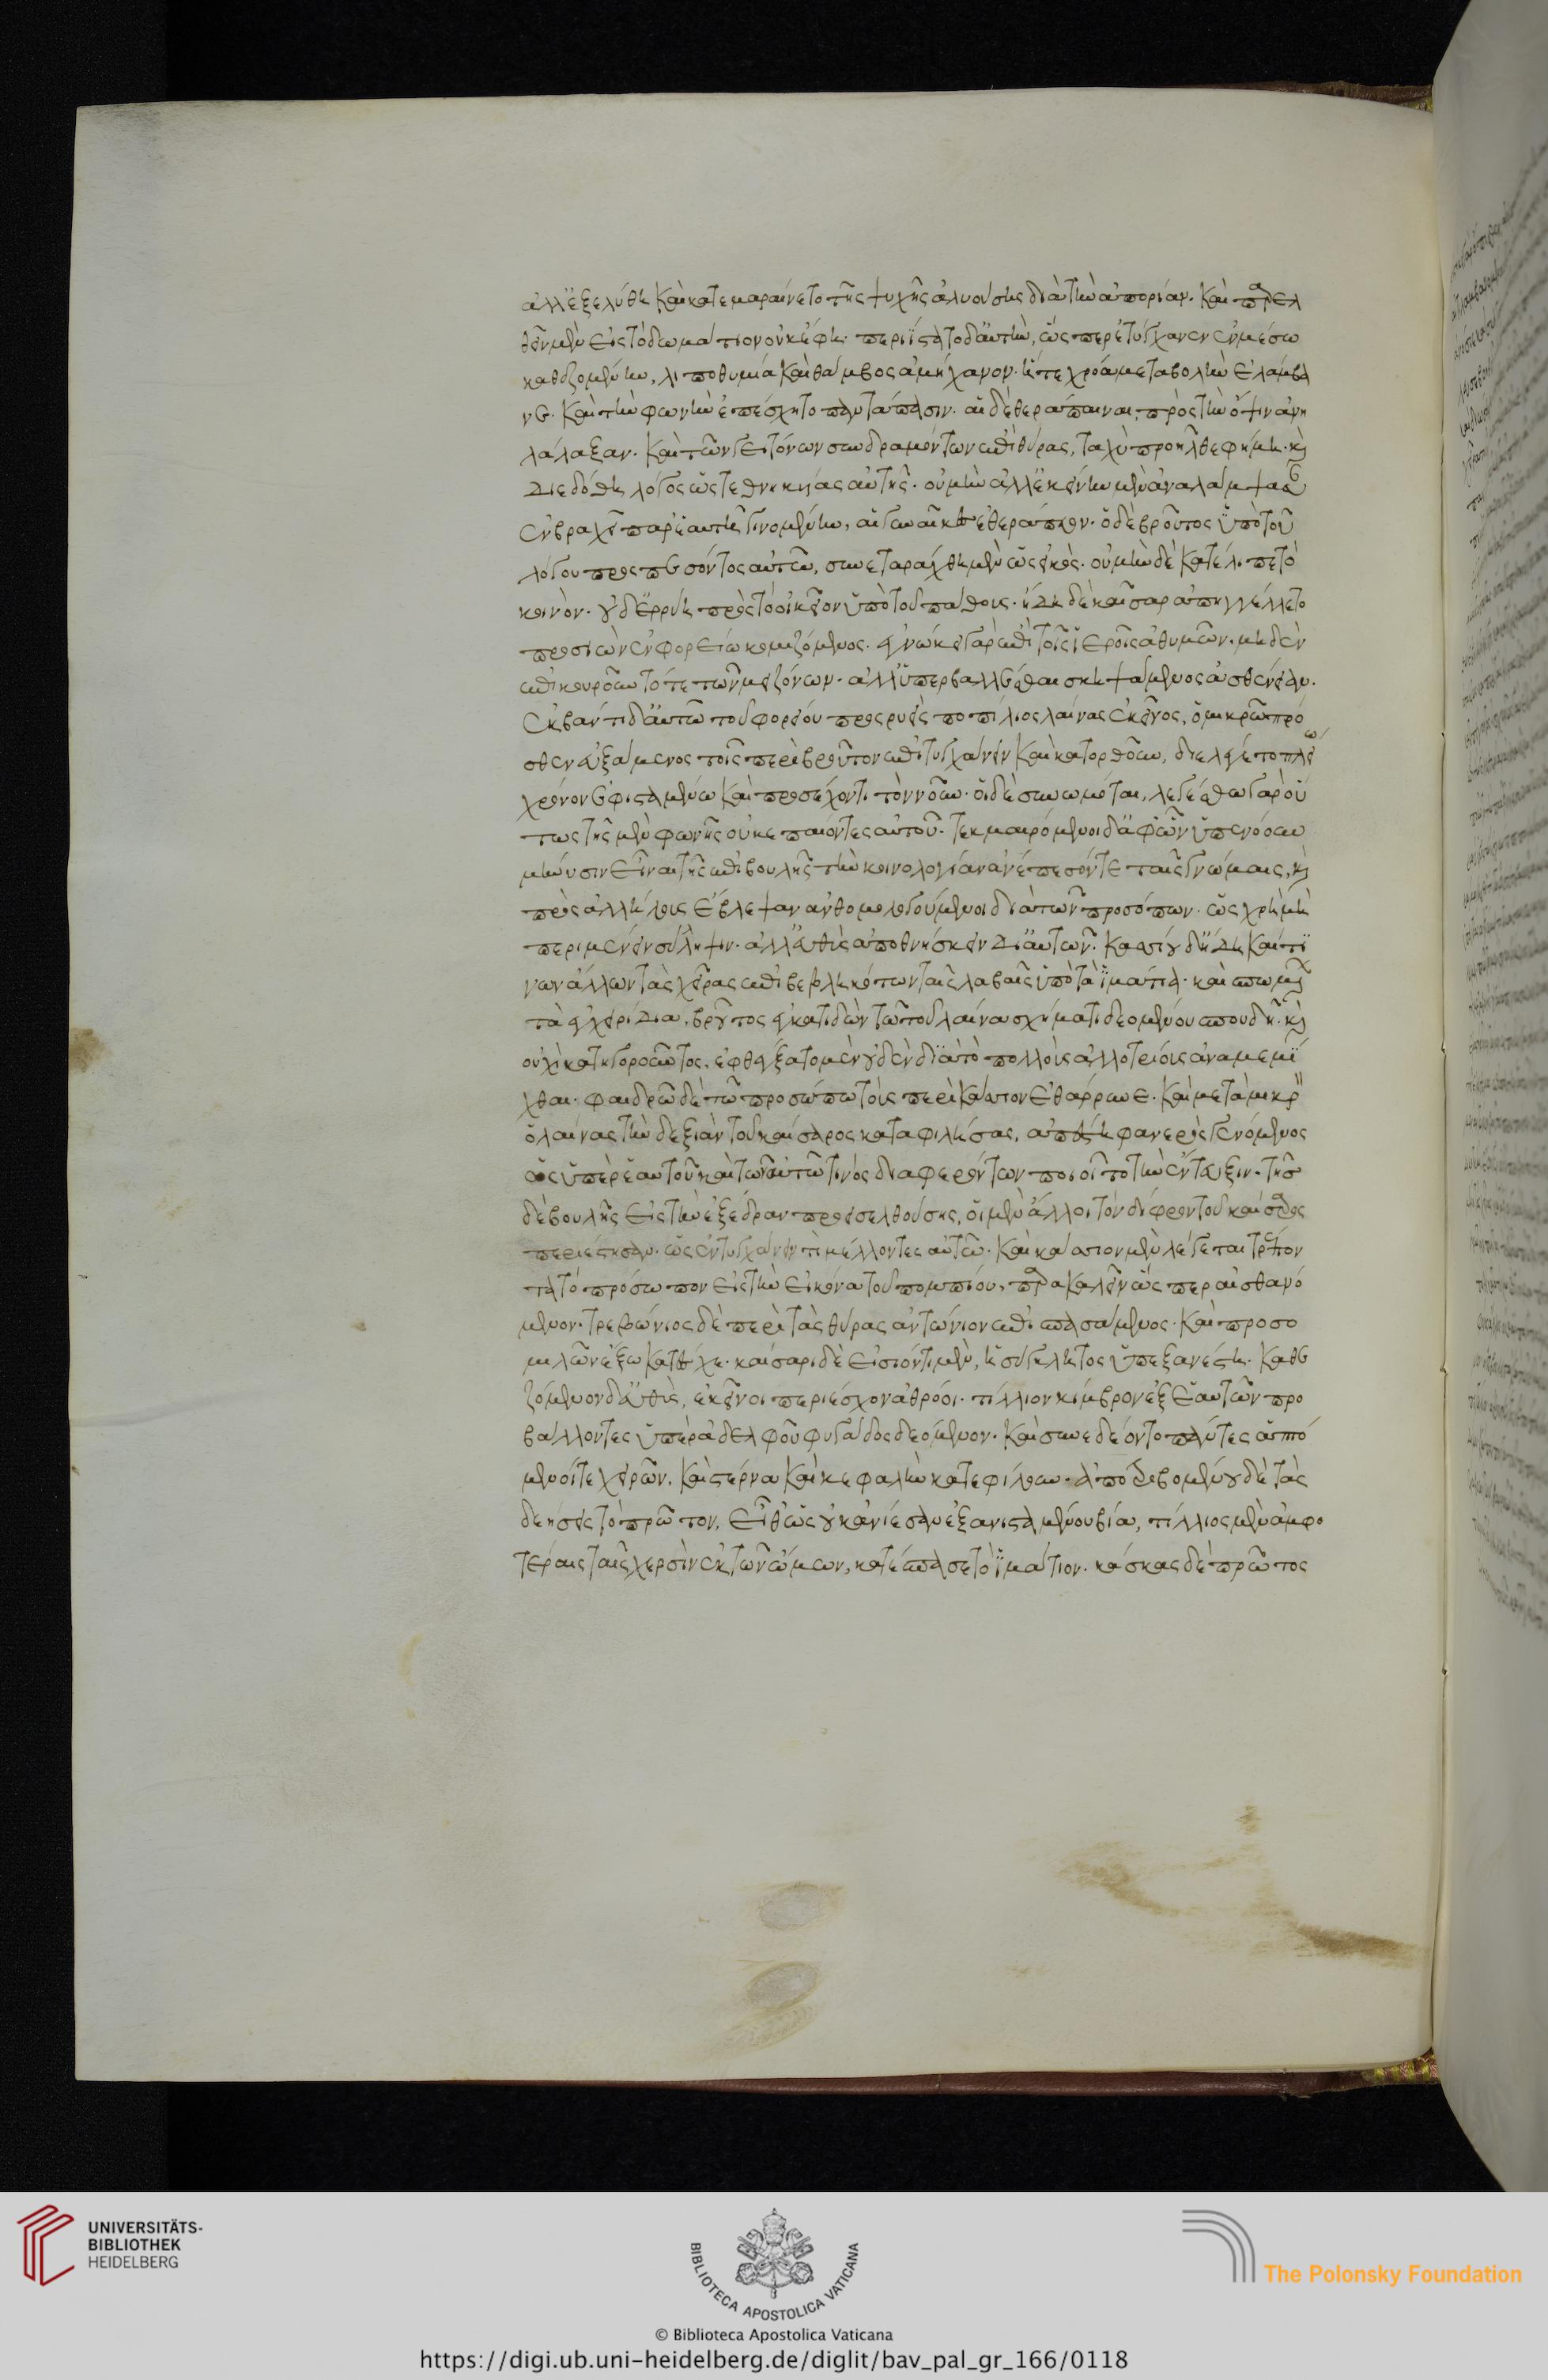 ἀλλ' ἐξελύθη καὶ κατεμαραίνετο τῆς ψυχῆς ἀλυούσης διὰ τὴν ἀπορίαν. καὶ παρελ
θεῖν μὲν εἰς τὸ δωμάτιον οὐκ ἔφθη. περιΐστατο δ' αὐτὴν, ὥσπερ ἐτύγχανεν ἐν μέσω
καθεζομένην, λιποθυμία καὶ θάμβος ἀμήχανον. ἥ τε χρόα μεταβολὴν ἐλάμβα
νε. καὶ τὴν φωνὴν ἐπέσχητο παντάπασιν. αἱ δὲ θεράπαιναι, πρὸς τὴν ὄψιν ἀνη
λάλαξαν. καὶ τῶν γειτόνων συνδραμόντων ἐπὶ θύρας, ταχὺ προῆλθε φήμη. καὶ
διεδόθη λόγος ὡς τεθνηκυίας αὐτῆς. οὐ μὴν ἀλλ' ἐκείνην μὲν ἀναλάμψασ
ἐν βραχεῖ παρ' ἑαυτῆ γινομένην, αἱ γυναῖκες ἐθεράπευον. ὁ δὲ βροῦτος ὑπὸ τοῦ
λόγου προσπεσόντος αὐτῶ, συνεταράχθη μὲν ὡς εἰκὸς. οὐ μὴν δὲ κατέλιπε τὸ
κοινὸν. οὐδ' ἐρρύη πρὸς τὸ οἰκεῖον ὑπὸ τοῦ πάθους. ἤδη δὲ καῖσαρ ἀπηγγέλλετο
προσιὼν ἐν φορείω κομιζόμενος. ἐγνώκει γὰρ ἐπὶ τοῖς ἱεροῖς ἀθυμῶν. μηδὲν
ἐπικυροῦν τότε τῶν μειζόνων. ἀλλ' ὑπερβαλλέσθαι σκηψάμενος ἀσθένειαν.
ἐκβάντι δ' αὐτῶ τοῦ φορείου προσρυεὶς ποπίλιος λαίνας ἐκεῖνος, ὁ μικρῶ πρό
σθεν εὐξάμενος τοῖς περὶ βροῦτον ἐπιτυγχάνειν καὶ κατορθοῦν, διελέγετο πλείω
χρόνον ἐφισταμένω καὶ προσέχοντι τὸν νοῦν. οἱ δὲ συνωμόται, λεγέσθω γὰρ οὕ
τως τῆς μὲν φωνῆς οὐκ ἐπαΐοντες αὐτοῦ. τεκμαιρόμενοι δ' ἀφ' ὧν ὑπενόουν
μήνυσιν εἶναι τῆς ἐπιβουλῆς τὴν κοινολογίαν ἀνέπεσόν τε ταῖς γνώμαις, καὶ
πρὸς ἀλλήλους ἔβλεψαν ἀνθομολογούμενοι διὰ τῶν προσώπων. ὡς χρὴ μὴ
περιμένειν σύλληψιν. ἀλλ' αὐθὶς ἀποθνήσκειν δι' αὑτῶν. κασσίου δ' ἤδη καί τι
νων ἄλλων τὰς χεῖρας ἐπιβεβληκότων ταῖς λαβαῖς ὑπὸ τὰ ἱμάτια. καὶ σπωμένων
τὰ ἐγχειρίδια, βροῦτος ἐγκατιδὼν τῶ τοῦ λαίνα σχήματι δεομένου σπουδὴν. καὶ
οὐχὶ κατηγοροῦντος, ἐφθέγξατο μὲν οὐδὲν διὰ τὸ πολλοὺς ἀλλοτρίους ἀναμεμί
χθαι. φαιδρῶ δὲ τῶ προσώπω τοὺς περὶ κάσσιον ἐθάρρυνε. καὶ μετὰ μικρὸν
ὁ λαίνας τὴν δεξιὰν τοῦ καίσαρος καταφιλήσας, ἀπέστη φανερὸς γενόμενος
ὡς ὑπὲρ ἑαυτοῦ καὶ τῶν αὐτῶ τινὸς διαφερόντων ποιοῖτο τὴν ἔντευξιν. τῆς
δὲ βουλῆς εἰς τὴν ἐξέδραν προεισελθούσης, οἱ μὲν ἄλλοι τὸν δίφρον τοῦ καίσαρος
περιέστησαν. ὡς ἐντυγχάνειν τι μέλλοντες αὐτῶ. καὶ κάσσιον μὲν λέγεται τρέπον
τα τὸ πρόσωπον εἰς τὴν εἰκόνα τοῦ πομπίου, παρακαλεῖν ὥσπερ αἰσθανό
μενον. τρεβώνιος δὲ περὶ τὰς θύρας ἀντώνιον ἐπισπασάμενος. καὶ προσο
μιλῶν ἔξω κατέσχε. καίσαρι δὲ εἰσιόντι μὲν, ἡ σύγκλητος ὑπεξανέστη. καθε
ζόμενον δ' αὐθὶς, ἐκεῖνοι περιέσχον ἀθρόοι. τίλλιον κίμβρον ἐξ ἑαυτῶν προ
βάλλοντες ὑπὲρ ἀδελφοῦ φυγάδος δεόμενον. καὶ συνεδέοντο πάντες ἁπτό
μενοί τε χειρῶν. καὶ στέρνα καὶ κεφαλὴν κατεφίλουν. ἀποτριβομένου δὲ τὰς
δεήσεις τὸ πρῶτον, εἶθ' ὡς οὐκ ἀνίεσαν ἐξανισταμένου βία, τίλλιος μὲν ἀμφο
τέραις ταῖς χερσὶν ἐκ τῶν ὤμων, κατέσπασε τὸ ἱμάτιον. κάσκας δὲ πρῶτος
UNIVERSITÄTS-
BIBLIOTHEK
HEIDELBERG
BIBLIOTECA APOSTOLICA VATICANA
The Polonsky Foundation
© Biblioteca Apostolica Vaticana
https://digi.ub.uni-heidelberg.de/diglit/bav_pal_gr_166/0118